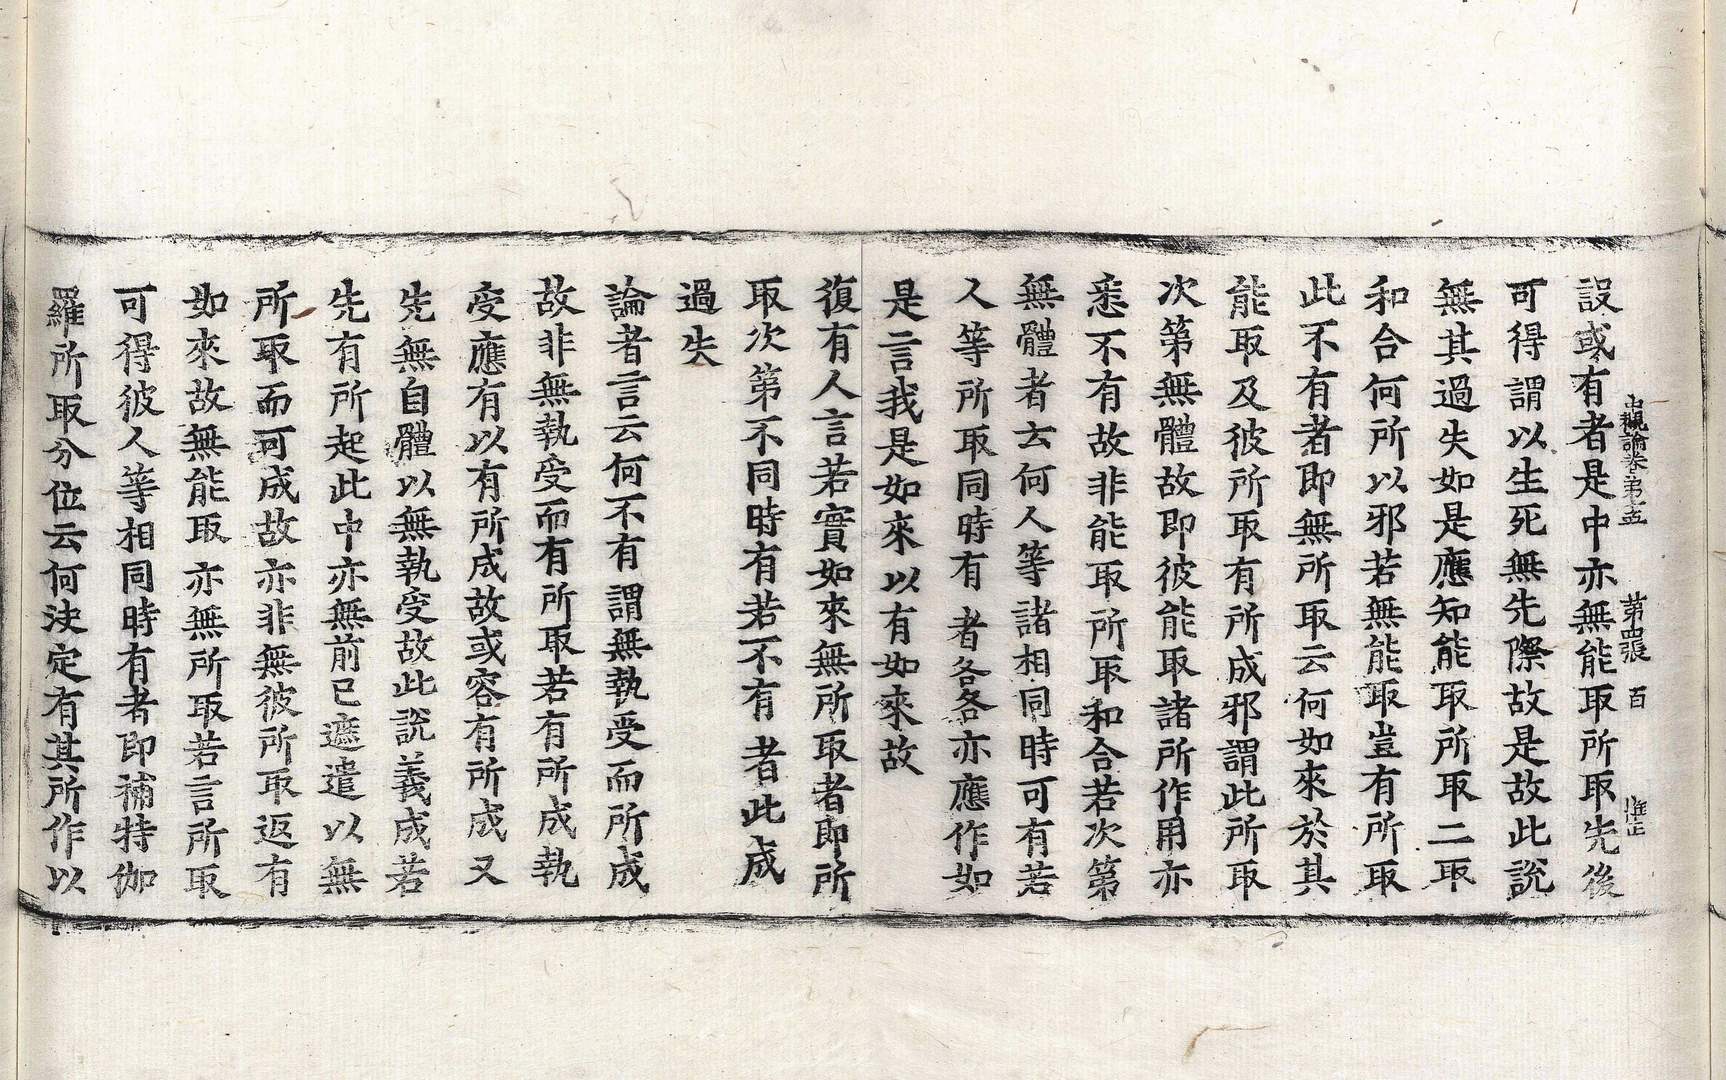 中觀論卷第五 第四張 百 惟正
設或有者是中亦無能取所取先後
可得謂以生死無先際故是故此說
無其過失如是應知能取所取二取
和合何所以邪若無能取豈有所取
此不有者即無所取云何如來於其
能取及彼所取有所成邪謂此所取
次第無體故即彼能取諸所作用亦
悉不有故非能取所取和合若次第
無體者云何人等諸相同時可有若
人等所取同時有者各各亦應作如
是言我是如來以有如來故
復有人言若實如來無所取者即所
取次第不同時有若不有者此成
過失
論者言云何不有謂無執受而所成
故非無執受而有所取若有所成執
受應有以有所成故或容有所成又
先無自體以無執受故此說義成若
先有所起此中亦無前已遮遣以無
所取而可成故亦非無彼所取返有
如來故無能取亦無所取若言所取
可得彼人等相同時有者即補特伽
羅所取分位云何決定有其所作以